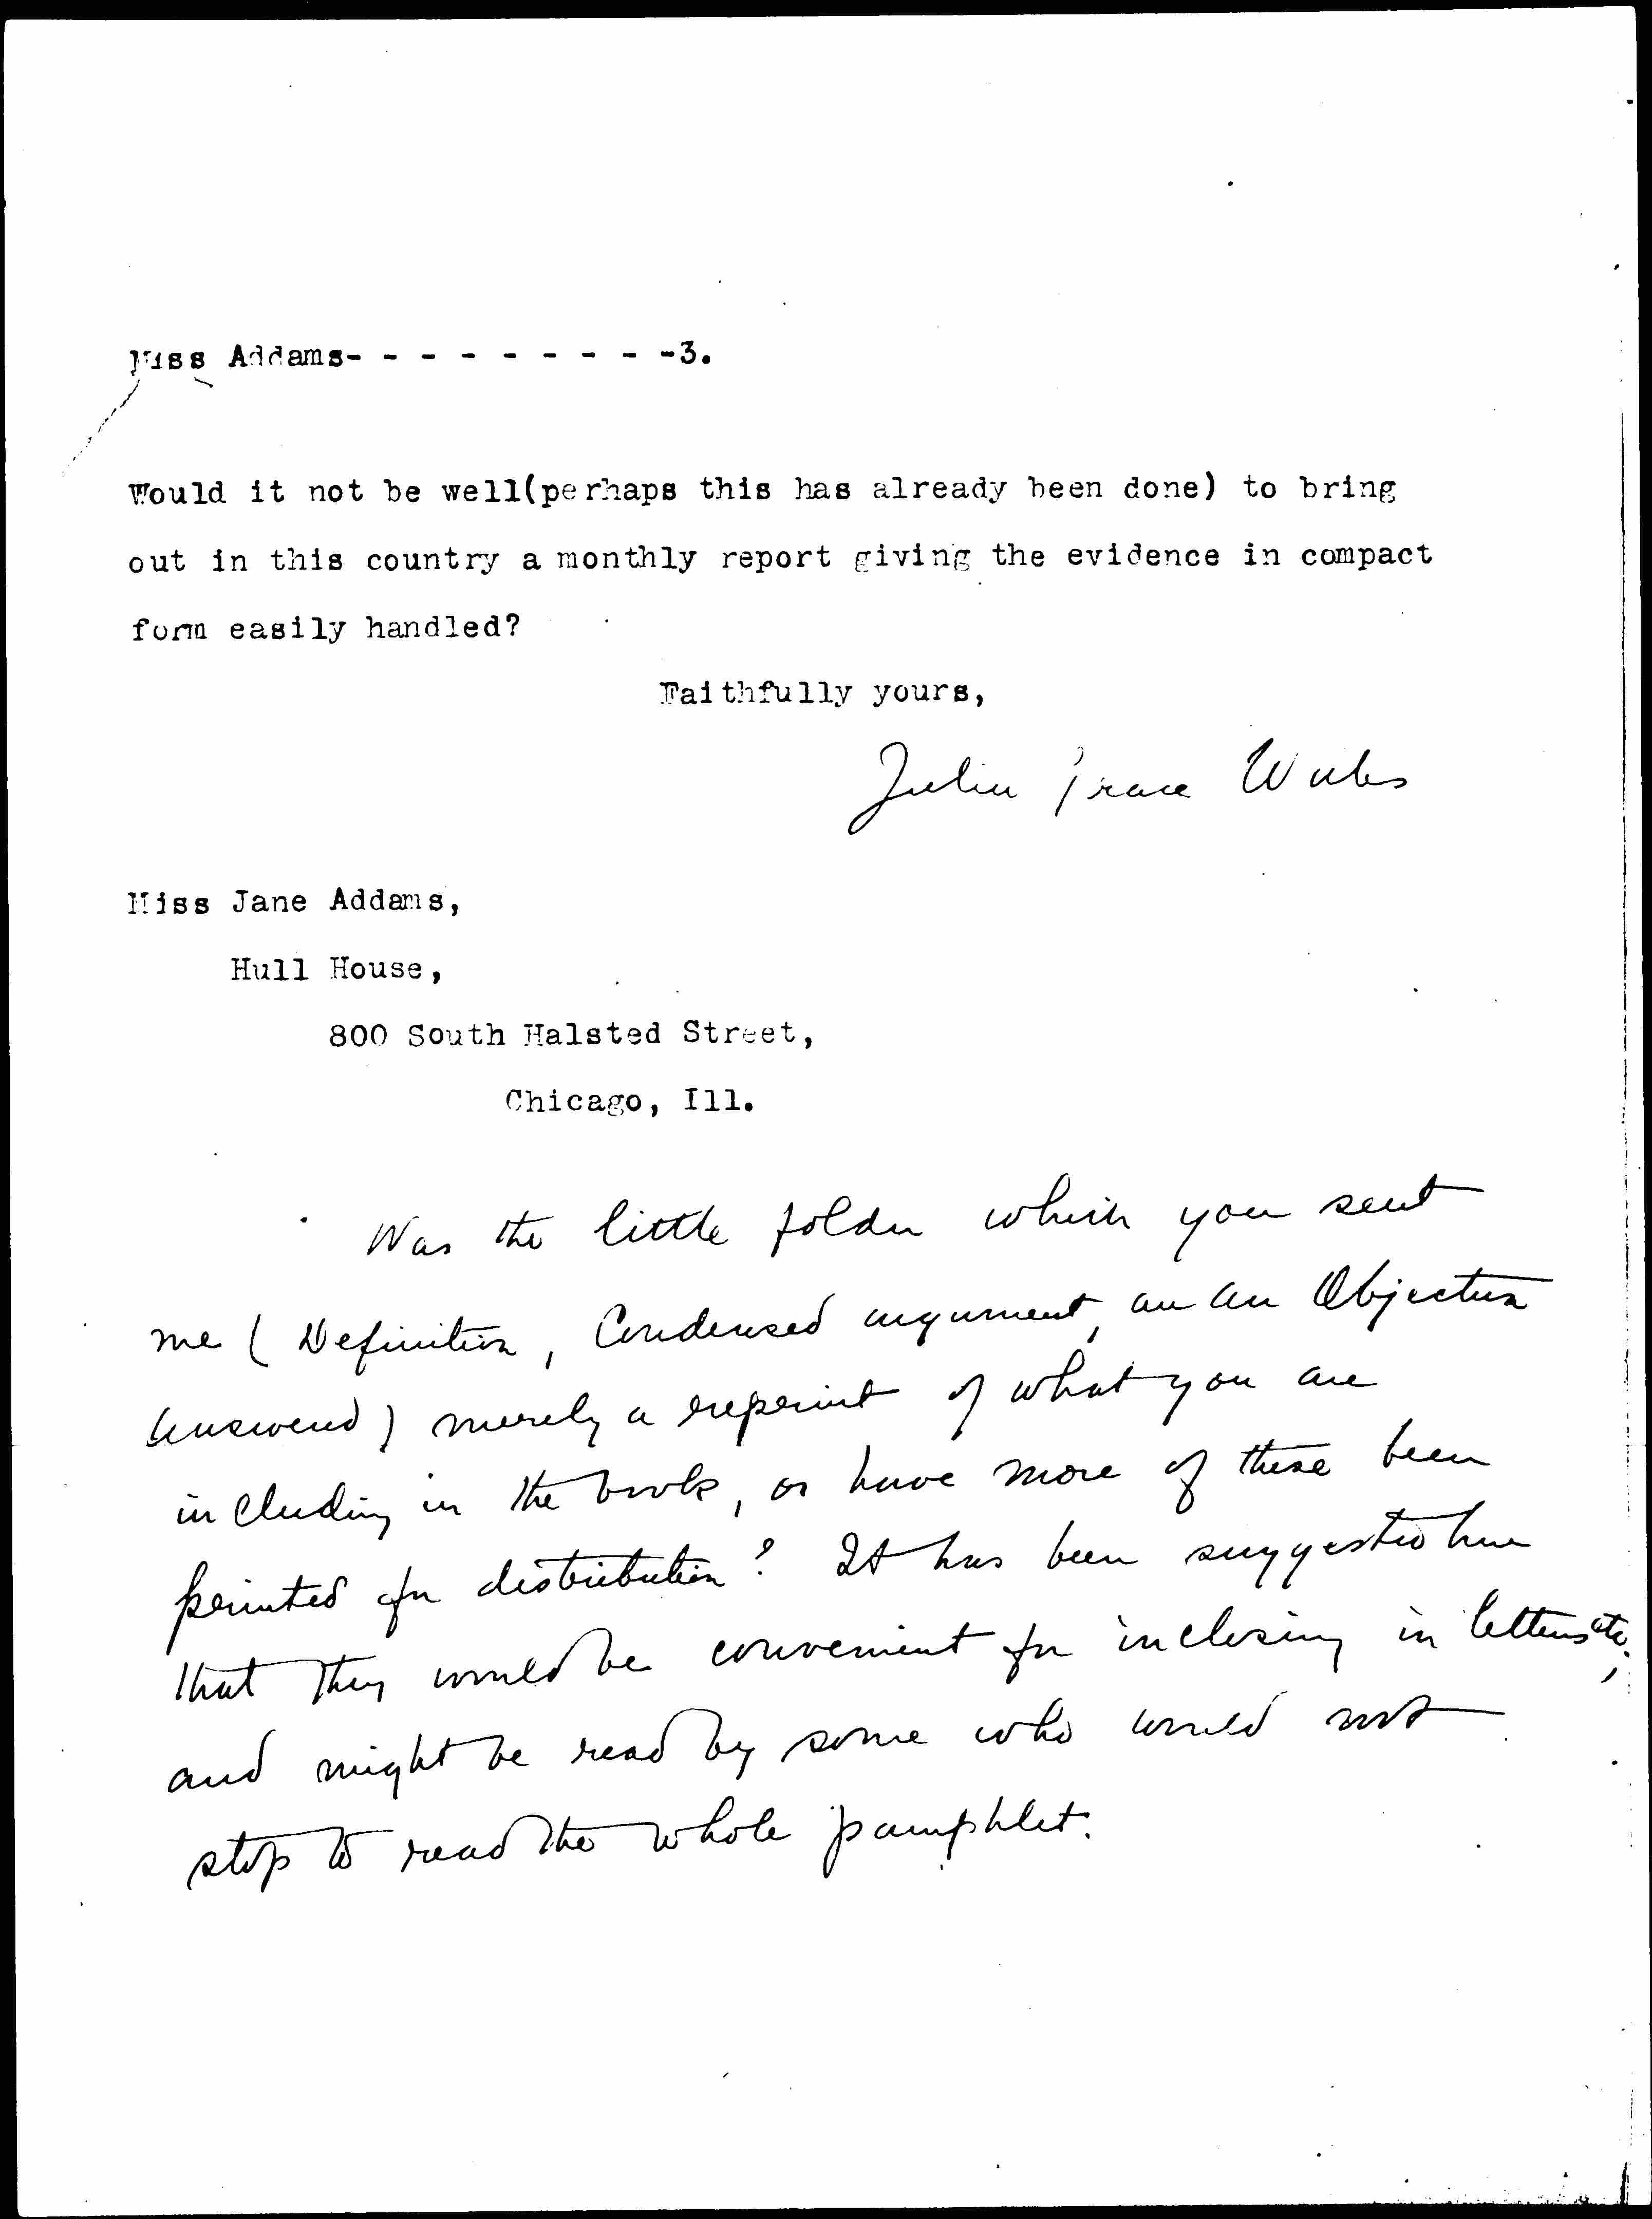 Miss Addams- - - - - - - - -3.
Would it not be well(perhaps this has already been done) to bring
out in this country a monthly report giving the evidence in compact
form easily handled?
Faithfully yours,
Julia Grace Wales
Miss Jane Addams,
Hull House,
800 South Halsted Street,
Chicago, Ill.
Was the little folder which you sent
me ( Definition, Condensed argument, an an Objection
answered) merely a reprint of what you are
including in the book, or have more of these been
printed for distribution? It has been suggested here
that they would be convenient for inclosing in letters etc.,
and might be read by some who would not
stop to read the whole pamphlet.